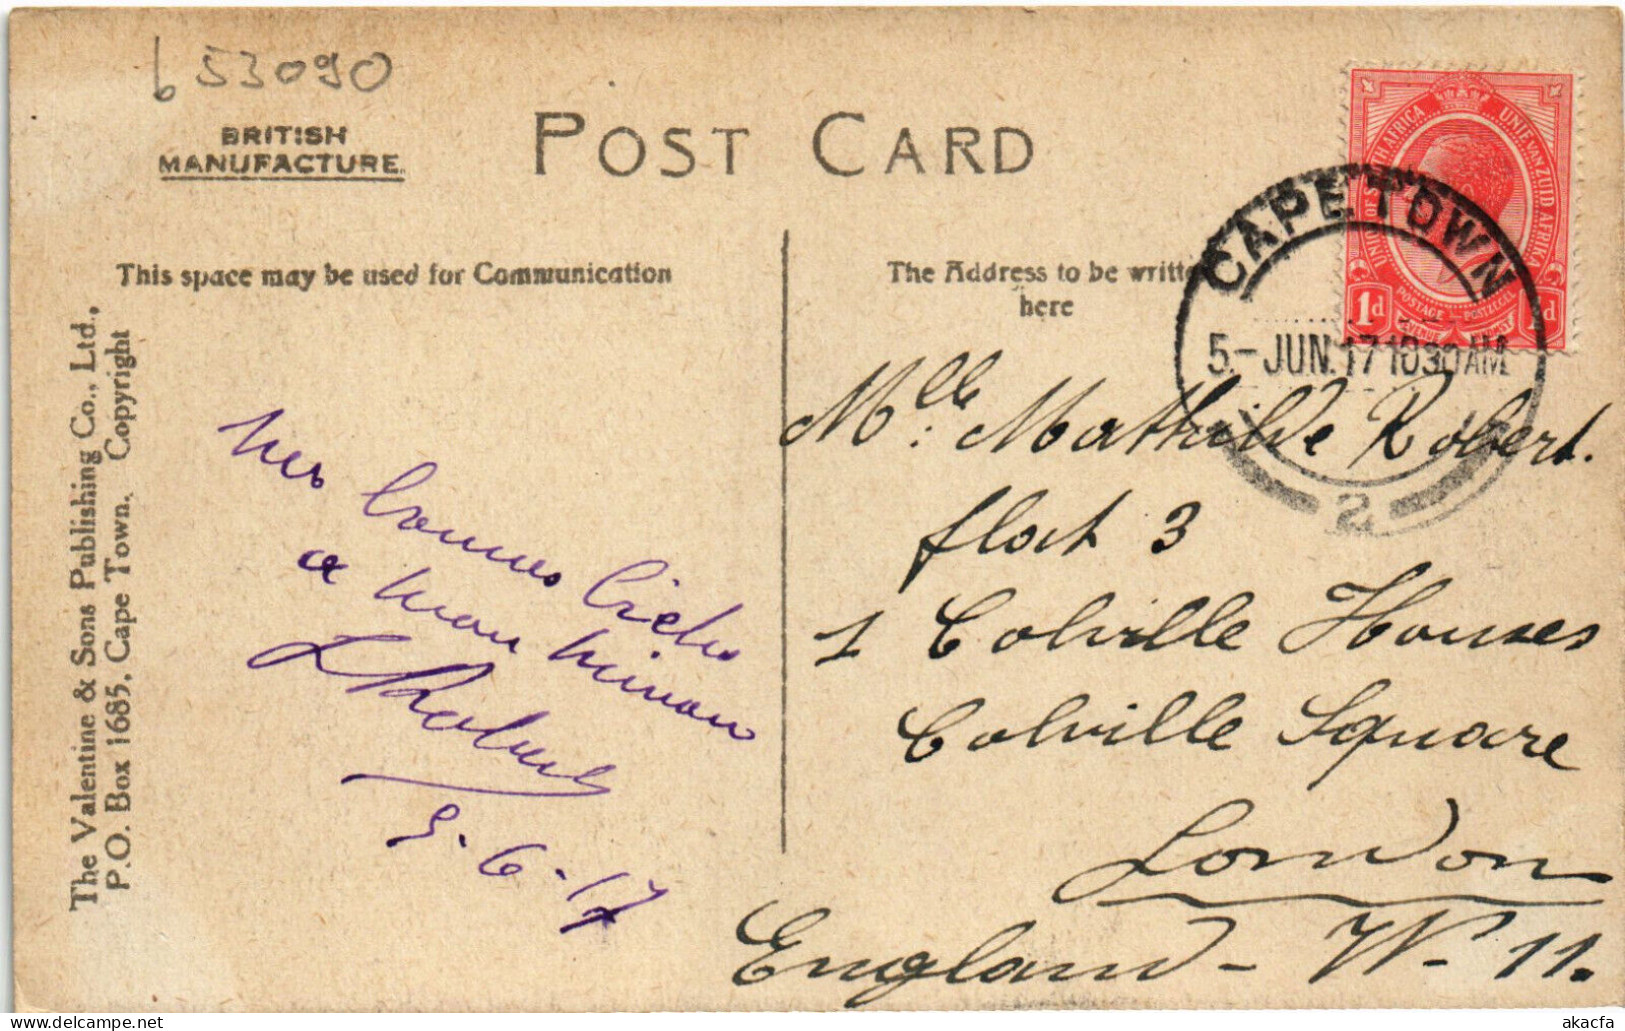 653090
BRITISH
MANUFACTURE.
POST CARD
This space may be used for Communication
The Address to be writte
here
The Valentine & Sons Publishing Co., Ltd.,
P.O. Box 1685, Cape Town. Copyright
UNION OF S H AFRICA
UNIE VAN ZUID AFRIKA
1d d
POSTAGE POSTZEGEL
CAPE TOWN
5-JUN.17 1030AM
2
Mes bonnes
a mon
LRobert
5-6-17
Mlle. Mathilde Robert.
flat 3
1 Colville Houses
Colville Square
London
England - W- 11.
akacfa